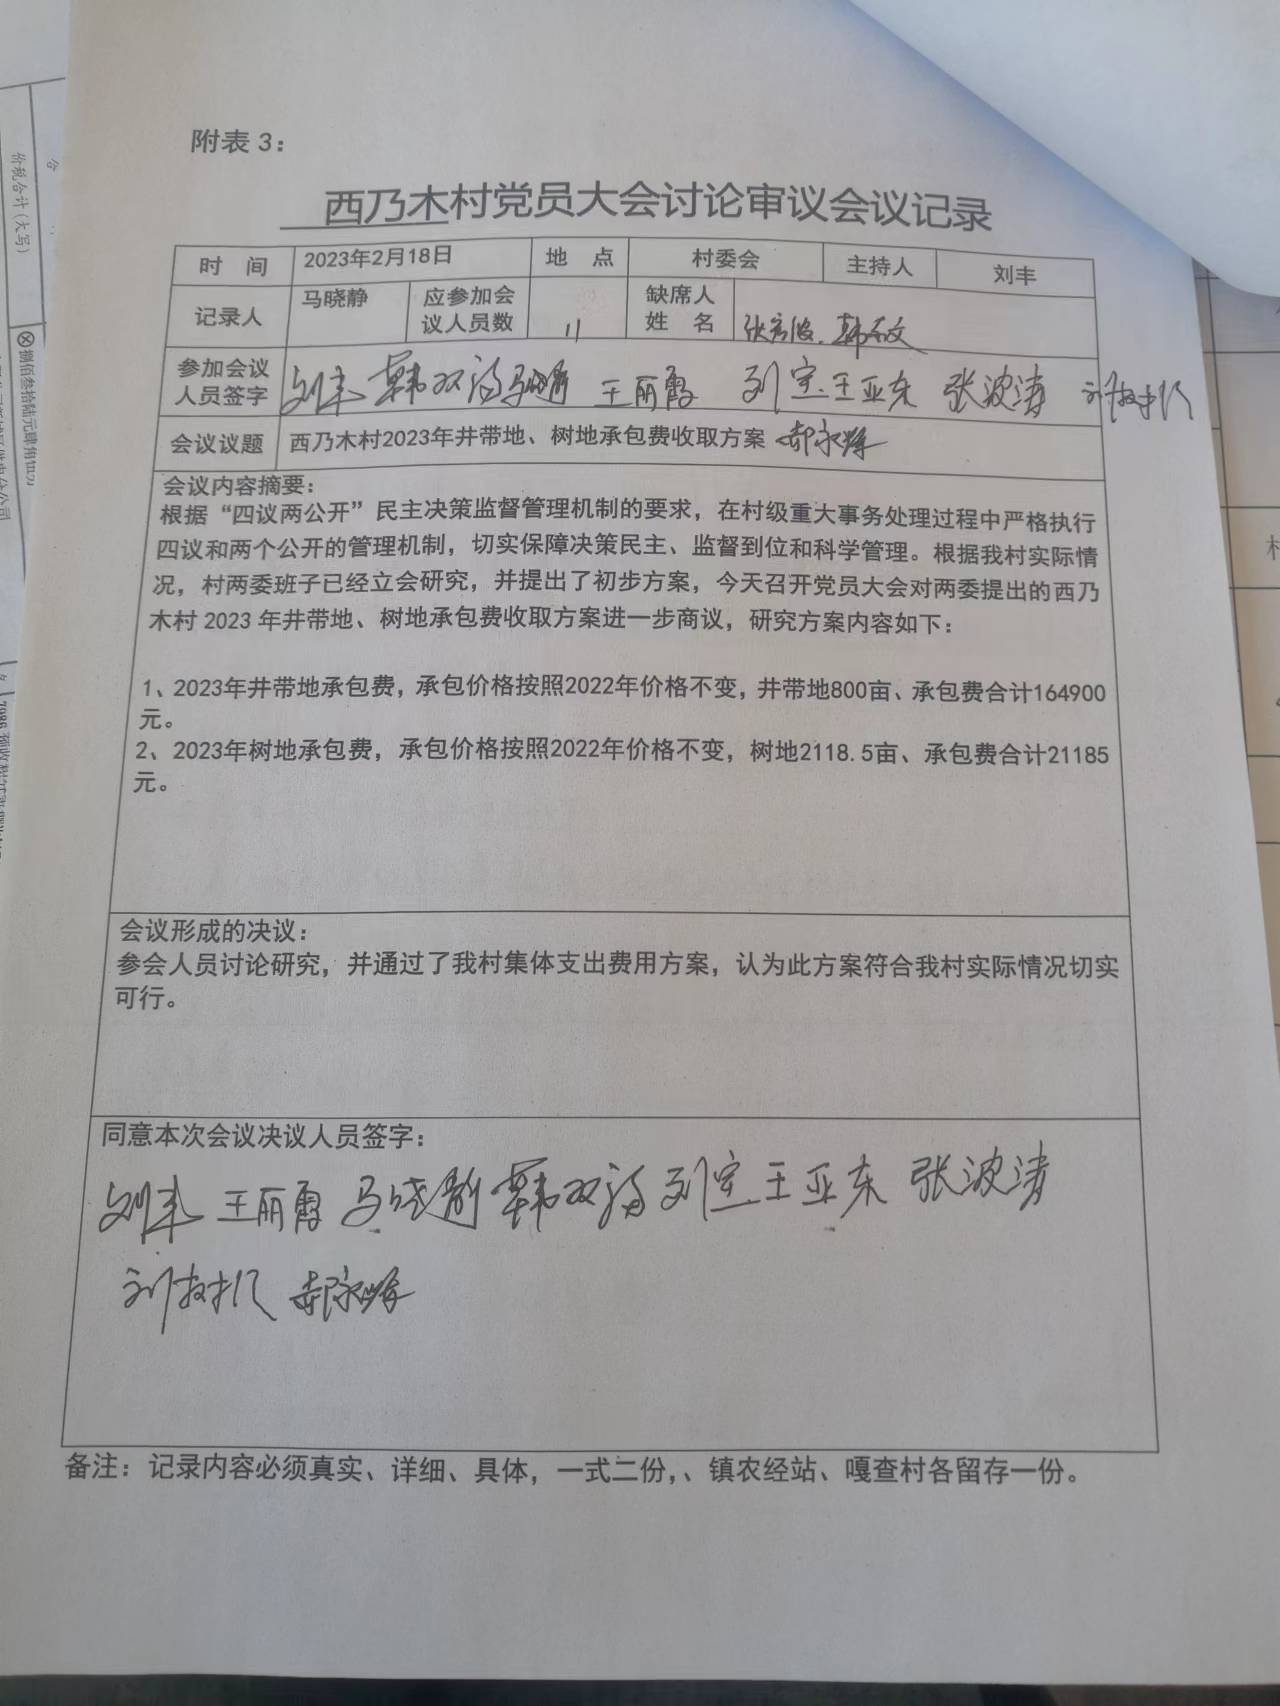 附表 3：
西乃木村党员大会讨论审议会议记录
时 间 2023年2月18日 地 点 村委会 主持人 刘丰
记录人 马晓静 应参加会议人员数 11 缺席人姓 名
参加会议人员签字 刘丰 韩双福 马晓静 王丽霞 刘宝 王亚东 张波涛
会议议题 西乃木村2023年井带地、树地承包费收取方案 郝永峰
会议内容摘要：
根据“四议两公开”民主决策监督管理机制的要求，在村级重大事务处理过程中严格执行
四议和两个公开的管理机制，切实保障决策民主、监督到位和科学管理。根据我村实际情
况，村两委班子已经立会研究，并提出了初步方案，今天召开党员大会对两委提出的西乃
木村 2023 年井带地、树地承包费收取方案进一步商议，研究方案内容如下：
1、2023年井带地承包费，承包价格按照2022年价格不变，井带地800亩、承包费合计164900
元。
2、2023年树地承包费，承包价格按照2022年价格不变，树地2118.5亩、承包费合计21185
元。
会议形成的决议：
参会人员讨论研究，并通过了我村集体支出费用方案，认为此方案符合我村实际情况切实
可行。
同意本次会议决议人员签字：
刘丰 王丽霞 马晓静 韩双福 刘宝 王亚东 张波涛
郝永峰
备注：记录内容必须真实、详细、具体，一式二份，、镇农经站、嘎查村各留存一份。
价税合计（大写）